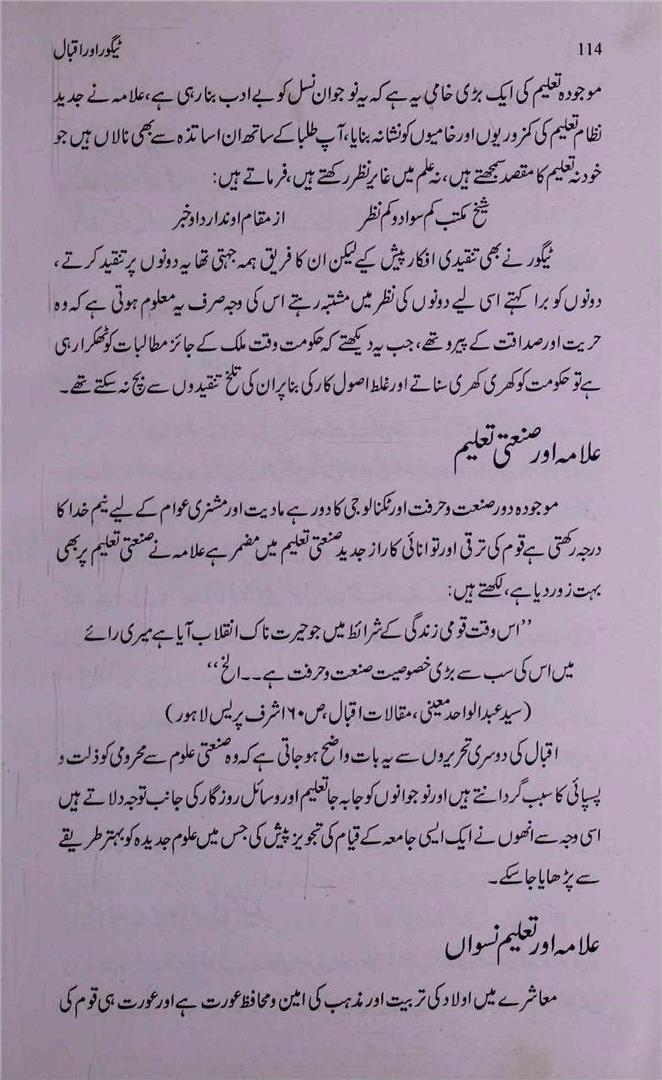 114
ٹیگور اور اقبال
موجودہ تعلیم کی ایک بڑی خامی یہ ہے کہ یہ نوجوان نسل کو بے ادب بنا رہی ہے، علامہ نے جدید
نظام تعلیم کی کمزوریوں اور خامیوں کو نشانہ بنایا، آپ طلبا کے ساتھ ان اساتذہ سے بھی نالاں ہیں جو
خود نہ تعلیم کا مقصد سمجھتے ہیں، نہ علم میں غایر نظر رکھتے ہیں، فرماتے ہیں:
شیخ مکتب کم سواد و کم نظر از مقام او ندارد او خبر
ٹیگور نے بھی تنقیدی افکار پیش کیے لیکن ان کا فریق ہمہ جہتی تھا یہ دونوں پر تنقید کرتے،
دونوں کو برا کہتے اسی لیے دونوں کی نظر میں مشتبہ رہتے اس کی وجہ صرف یہ معلوم ہوتی ہے کہ وہ
حریت اور صداقت کے پیرو تھے، جب یہ دیکھتے کہ حکومت وقت ملک کے جائز مطالبات کو ٹھکرا رہی
ہے تو حکومت کو کھری کھری سناتے اور غلط اصول کار کی بنا پر ان کی تلخ تنقیدوں سے بچ نہ سکتے تھے۔
علامہ اور صنعتی تعلیم
موجودہ دور صنعت و حرفت اور ٹکنالوجی کا دور ہے مادیت اور مشنری عوام کے لیے نیم خدا کا
درجہ رکھتی ہے قوم کی ترقی اور توانائی کا راز جدید صنعتی تعلیم میں مضمر ہے علامہ نے صنعتی تعلیم پر بھی
بہت زور دیا ہے، لکھتے ہیں:
’’اس وقت قومی زندگی کے شرائط میں جو حیرت ناک انقلاب آیا ہے میری رائے
میں اس کی سب سے بڑی خصوصیت صنعت و حرفت ہے۔۔الخ‘‘
(سید عبدالواحد معینی، مقالات اقبال، ص ۶۰ اشرف پریس لاہور)
اقبال کی دوسری تحریروں سے یہ بات واضح ہو جاتی ہے کہ وہ صنعتی علوم سے محرومی کو ذلت و
پسپائی کا سبب گردانتے ہیں اور نوجوانوں کو جابہ جا تعلیم اور وسائل روزگار کی جانب توجہ دلاتے ہیں
اسی وجہ سے انھوں نے ایک ایسی جامعہ کے قیام کی تجویز پیش کی جس میں علوم جدیدہ کو بہتر طریقے
سے پڑھایا جا سکے۔
علامہ اور تعلیم نسواں
معاشرے میں اولاد کی تربیت اور مذہب کی امین و محافظ عورت ہے اور عورت ہی قوم کی